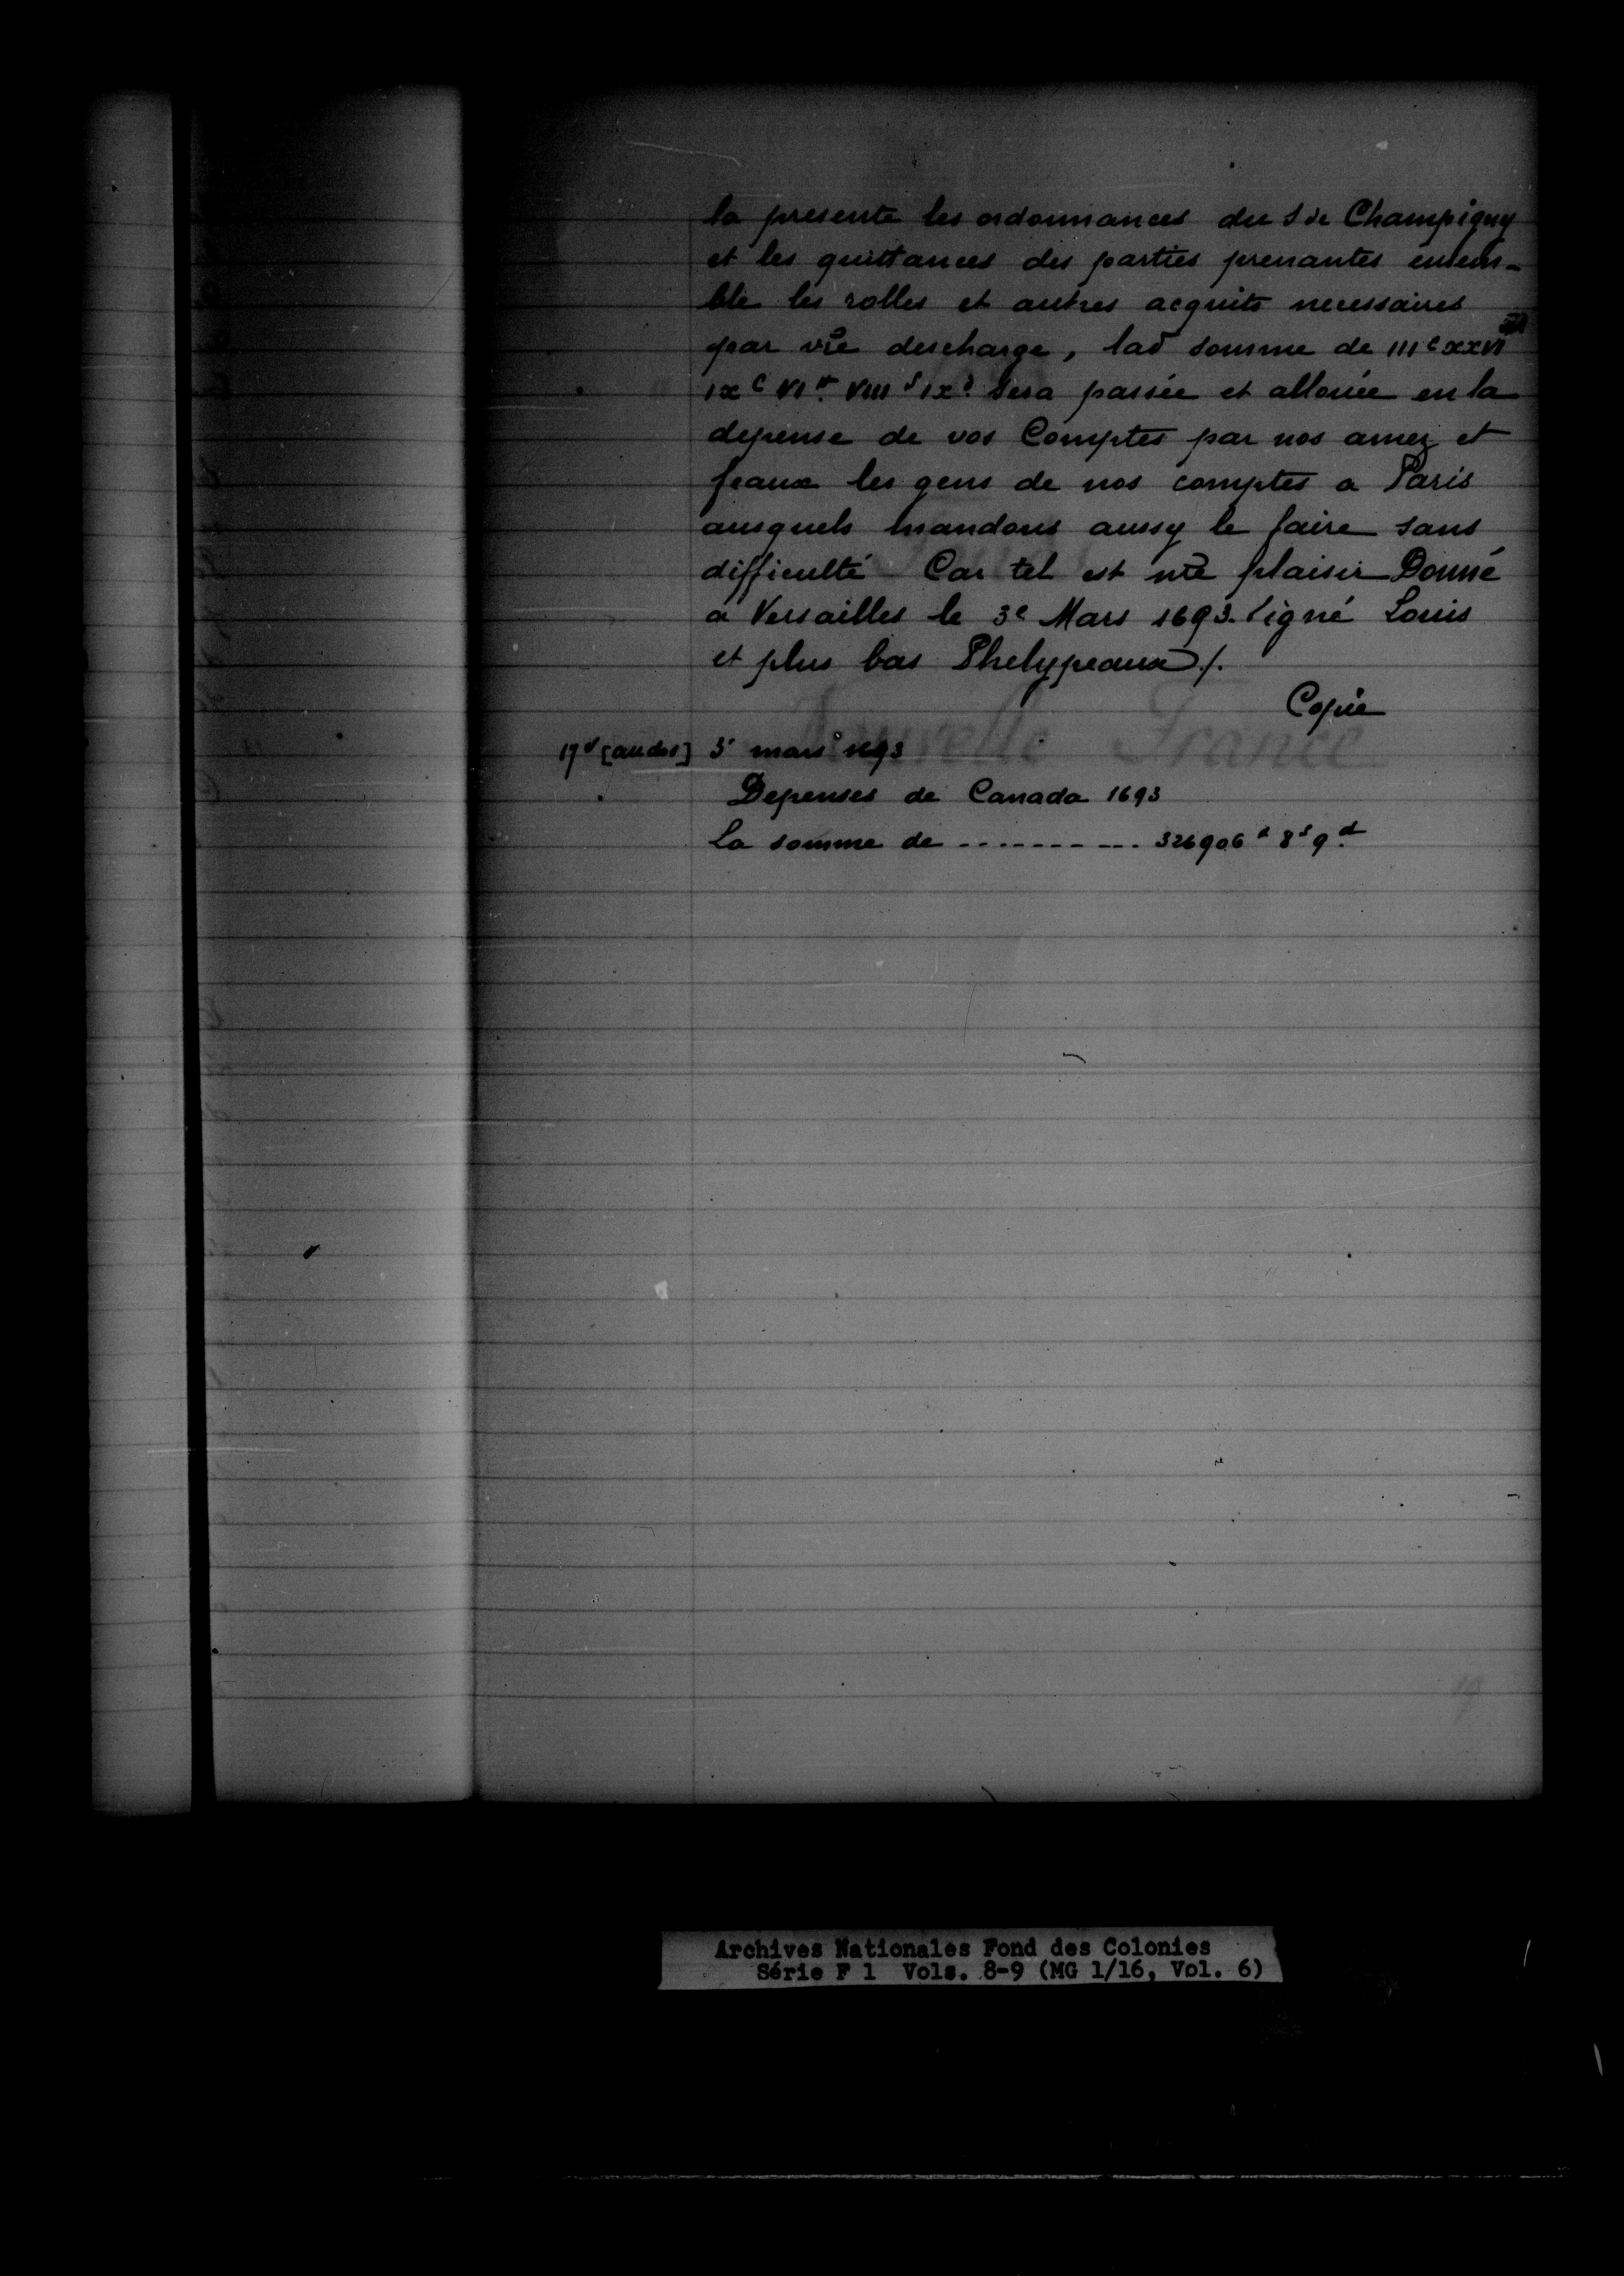 la presente les ordonnances du S de Champigny
et les quittances des parties prenantes ensem-
ble les rolles et autres acquits necessaires
par vr̃e descharge, lad̃ somme de IIIᶜ XXVIᵐ
IXᶜ VIᵗᵗ. VIIIˢ IXᵈ. sera passée et allouée en la
depense de vos Comptes par nos amez et
feaux les gens de nos comptes a Paris
ausquels mandons aussy le faire sans
difficulté Car tel est nr̃e plaisir Donné
a Versailles le 3ᵉ Mars 1693. signé Louis
et plus bas Phelypeaux ./.
Copie
[au dos] 3ᵉ mars 1693
Depenses de Canada 1693
La somme de ----------- 326906ᵗᵗ 8ˢ 9ᵈ
Nouvelle France
Archives Nationales Fond des Colonies
Série F 1 Vols. 8-9 (MG 1/16, Vol. 6)